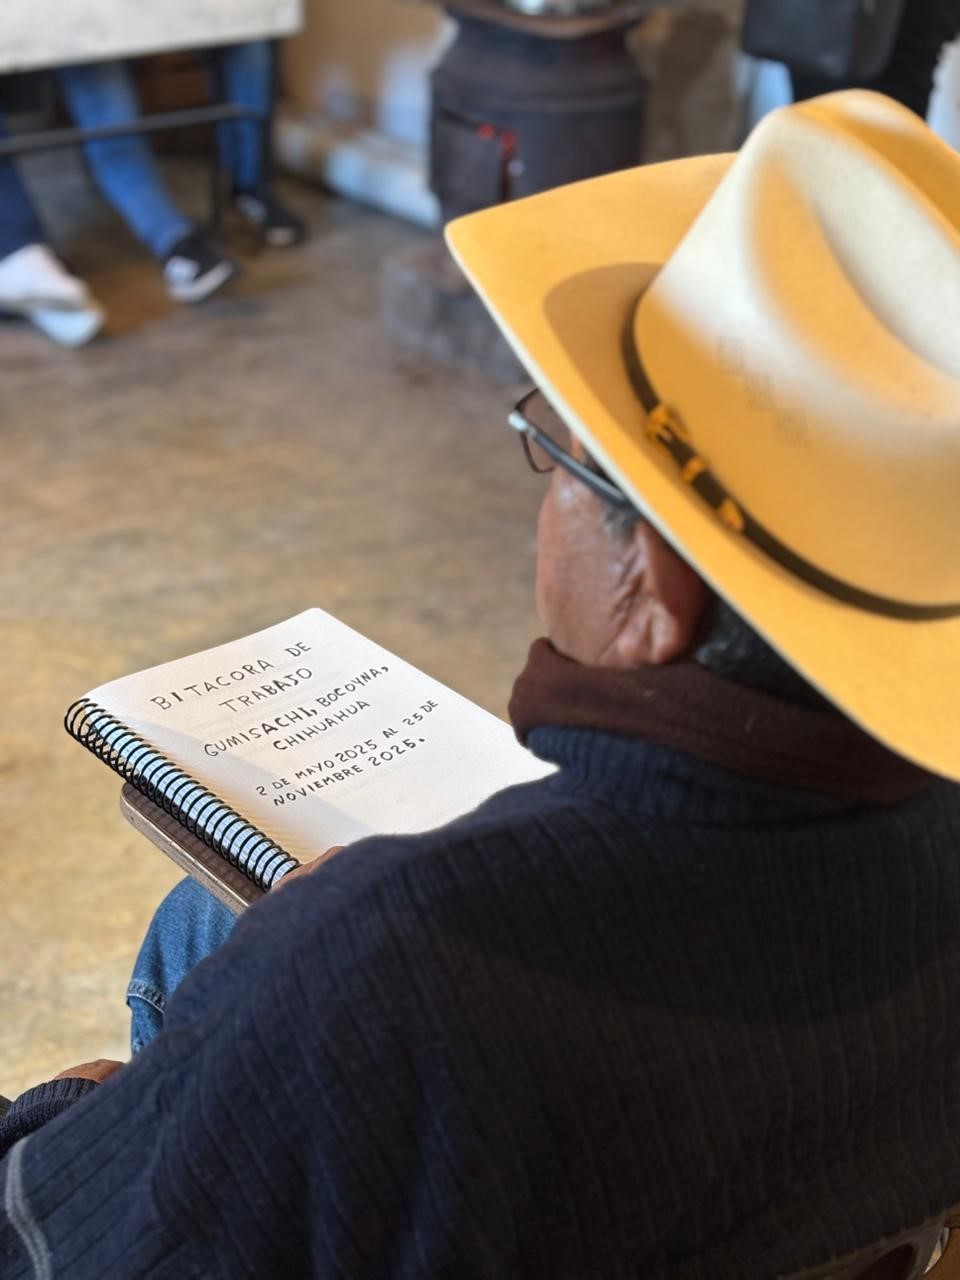 BITACORA DE
TRABAJO
GUMISACHI, BOCOYNA,
CHIHUAHUA
2 DE MAYO 2025 AL 25 DE
NOVIEMBRE 2025.